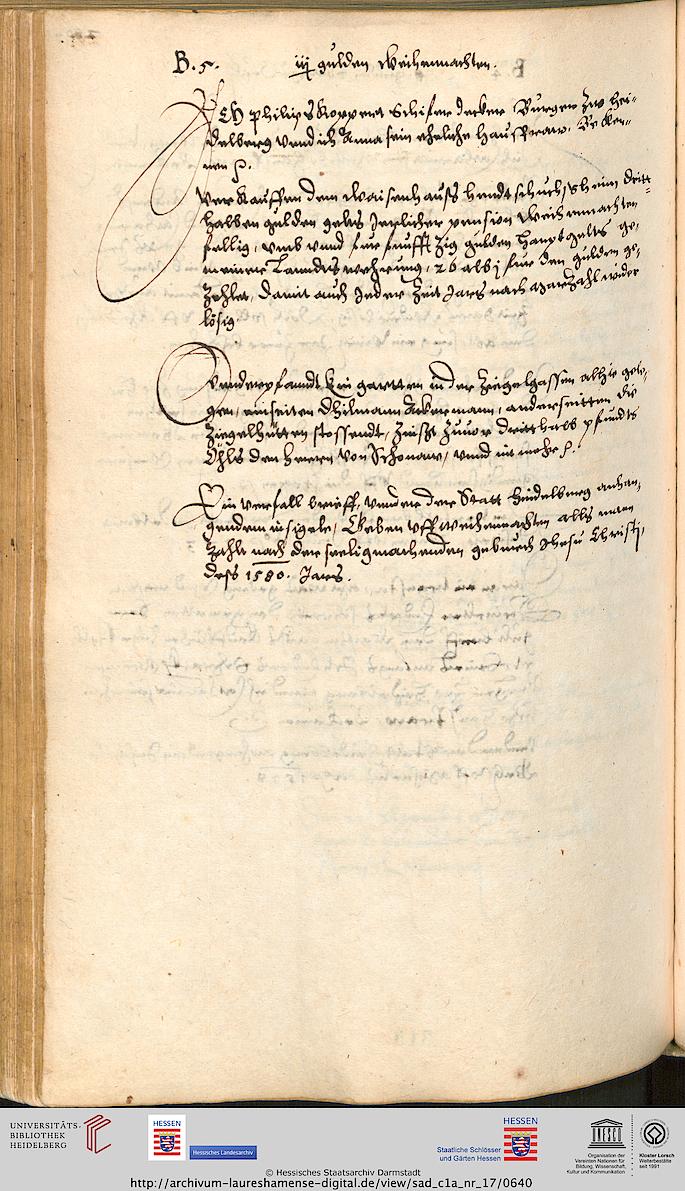 B. 5. iij gulden Weihenmachten.
Ich Philips Koppert Schifer decker Burger zw Hei=
delberg vnnd ich Anna sein eheliche Haussfraw, Becken=
nen p.
Verkauffen dem Waisenhauss hendtschuchssheim dritt=
halben gulden gelts Jerlicher pension Weihenmachten
fellig, vmb vnnd fur funfftzig gulden hauptgelts ge=
meiner Lanndtswehrung, 26 alb j fur den gulden ge=
zehlet, damit auch Jeder Zeit Jars nach anzahl wider
lösig
Vnnderpfanndt Ein gartten in der Ziegelgassen alhie gele=
gen, einseiten Thilmann Ackermann, anderseitten die
Ziegelhütten stossendt, Zinszt Zuuor dritthalb pfundts
Öhls den herren von Schonaw, vnnd nit mehr p.
Ein verfall brieff, vnnder der Statt Heidelberg anhan=
gendem insigele, Geben vff Weihenmachten alls mann
Zahlt nach der seeligmachenden geburth Jhesu Christj,
dess 1580. Jars.
UNIVERSITÄTS-
BIBLIOTHEK
HEIDELBERG
HESSEN
Hessisches Landesarchiv
Staatliche Schlösser
und Gärten Hessen
HESSEN
UNESCO
Organisation der
Vereinten Nationen für
Bildung, Wissenschaft,
Kultur und Kommunikation
Kloster Lorsch
Welterbestätte
seit 1991
© Hessisches Staatsarchiv Darmstadt
http://archivum-laureshamense-digital.de/view/sad_c1a_nr_17/0640